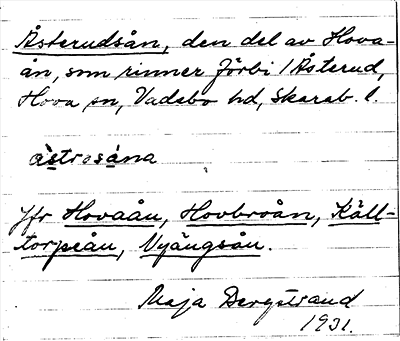 Åsterudsån, den del av Hova-
ån, som rinner förbi 1 Åsterud,
Hova sn, Vadsbo hd, Skarab. l.
åstrosána
Jfr Hovaån, Hovbroån, Käll-
torpeån, Vyängsån.
Maja Bergstrand
1931.